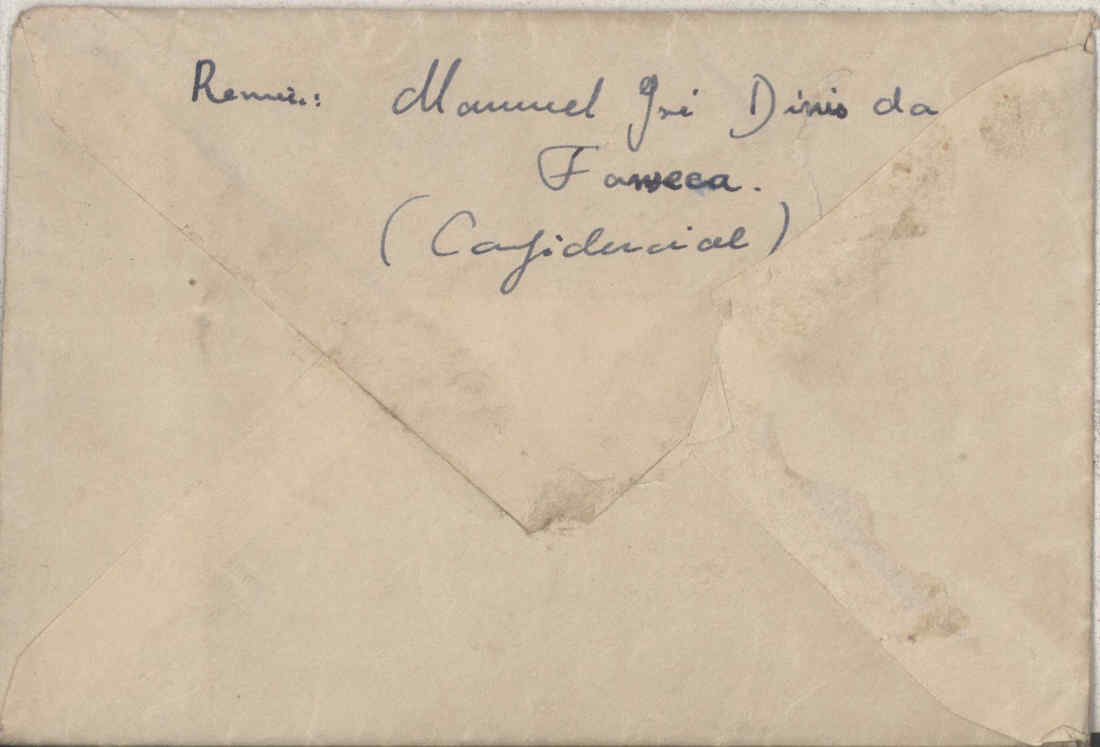 Remet.: Manuel José Dinis da
Fonseca.
(Confidencial)